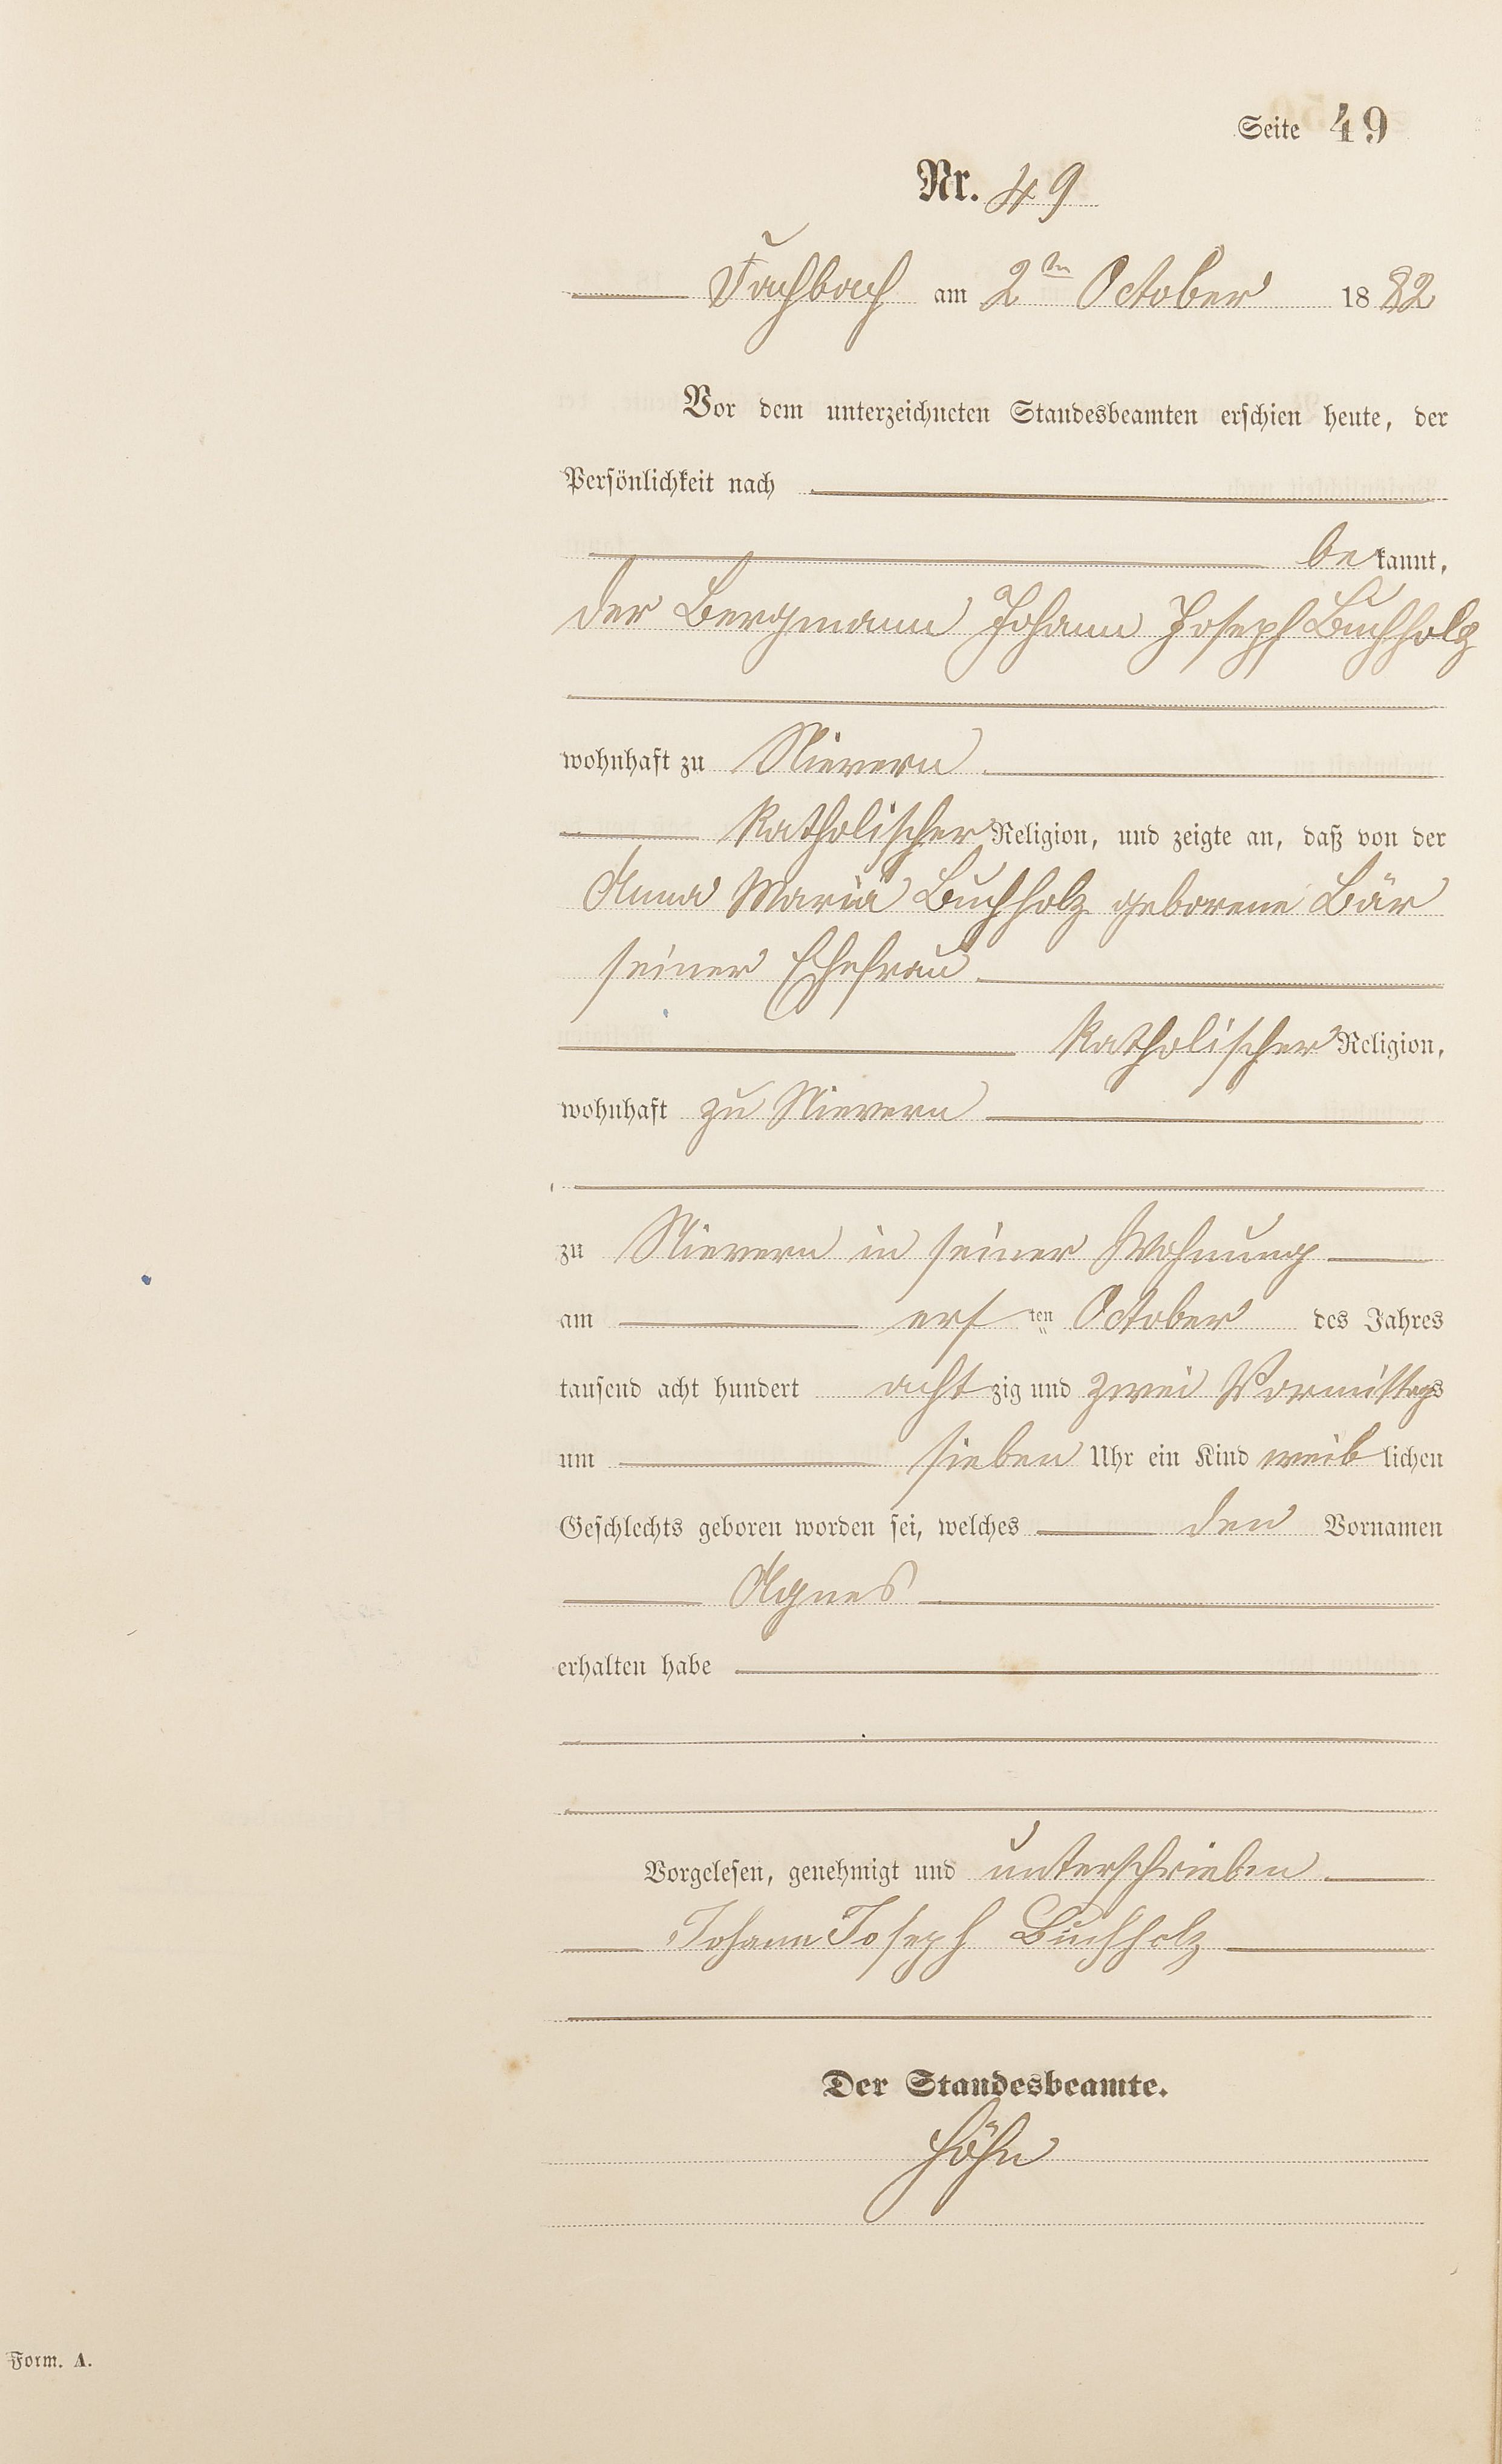 Seite 49
Nr. 49
Fachbach am 2ten October 1882
Vor dem unterzeichneten Standesbeamten erschien heute, der
Persönlichkeit nach
bekannt,
der Bergmann Johann Joseph Buchholz
wohnhaft zu Nievern
katholischer Religion, und zeigte an, daß von der
Anna Maria Buchholz geborene Bär
seiner Ehefrau
katholischer Religion,
wohnhaft zu Nievern
zu Nievern in seiner Wohnung
am ersten October des Jahres
tausend acht hundert achtzig und zwei Vormittags
um sieben Uhr ein Kind weiblichen
Geschlechts geboren worden sei, welches den Vornamen
Agnes
erhalten habe
Vorgelesen, genehmigt und unterschrieben
Johann Joseph Buchholz
Der Standesbeamte.
Höhn
Form. A.